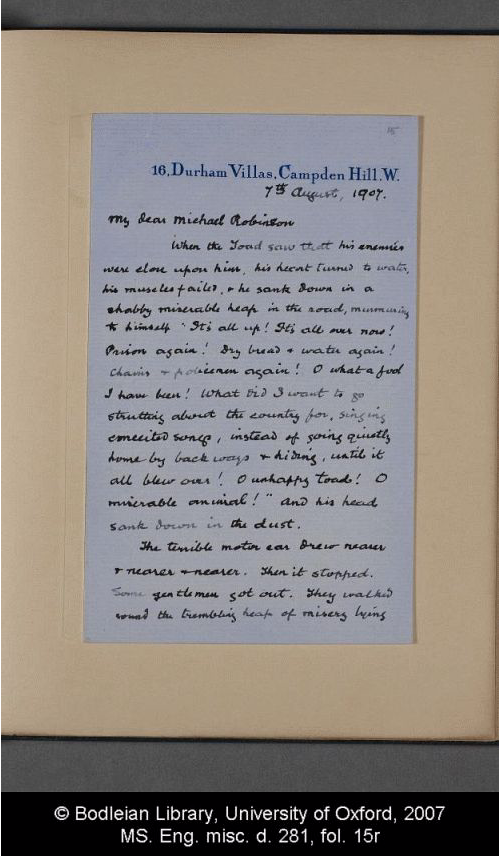 15
16, Durham Villas, Campden Hill. W.
7th August, 1907.
My dear Michael Robinson
When the Toad saw that his enemies
were close upon him, his heart turned to water,
his muscles failed, & he sank down in a
shabby miserable heap in the road, murmuring
to himself "It's all up! It's all over now!
Prison again! Dry bread & water again!
Chains & policemen again! O what a fool
I have been! What did I want to go
strutting about the country for, singing
conceited songs, instead of going quietly
home by back ways & hiding, until it
all blew over! O unhappy toad! O
miserable animal!" And his head
sank down in the dust.
The terrible motor car drew nearer
& nearer & nearer. Then it stopped.
Some gentlemen got out. They walked
round the trembling heap of misery lying
© Bodleian Library, University of Oxford, 2007
MS. Eng. misc. d. 281, fol. 15r